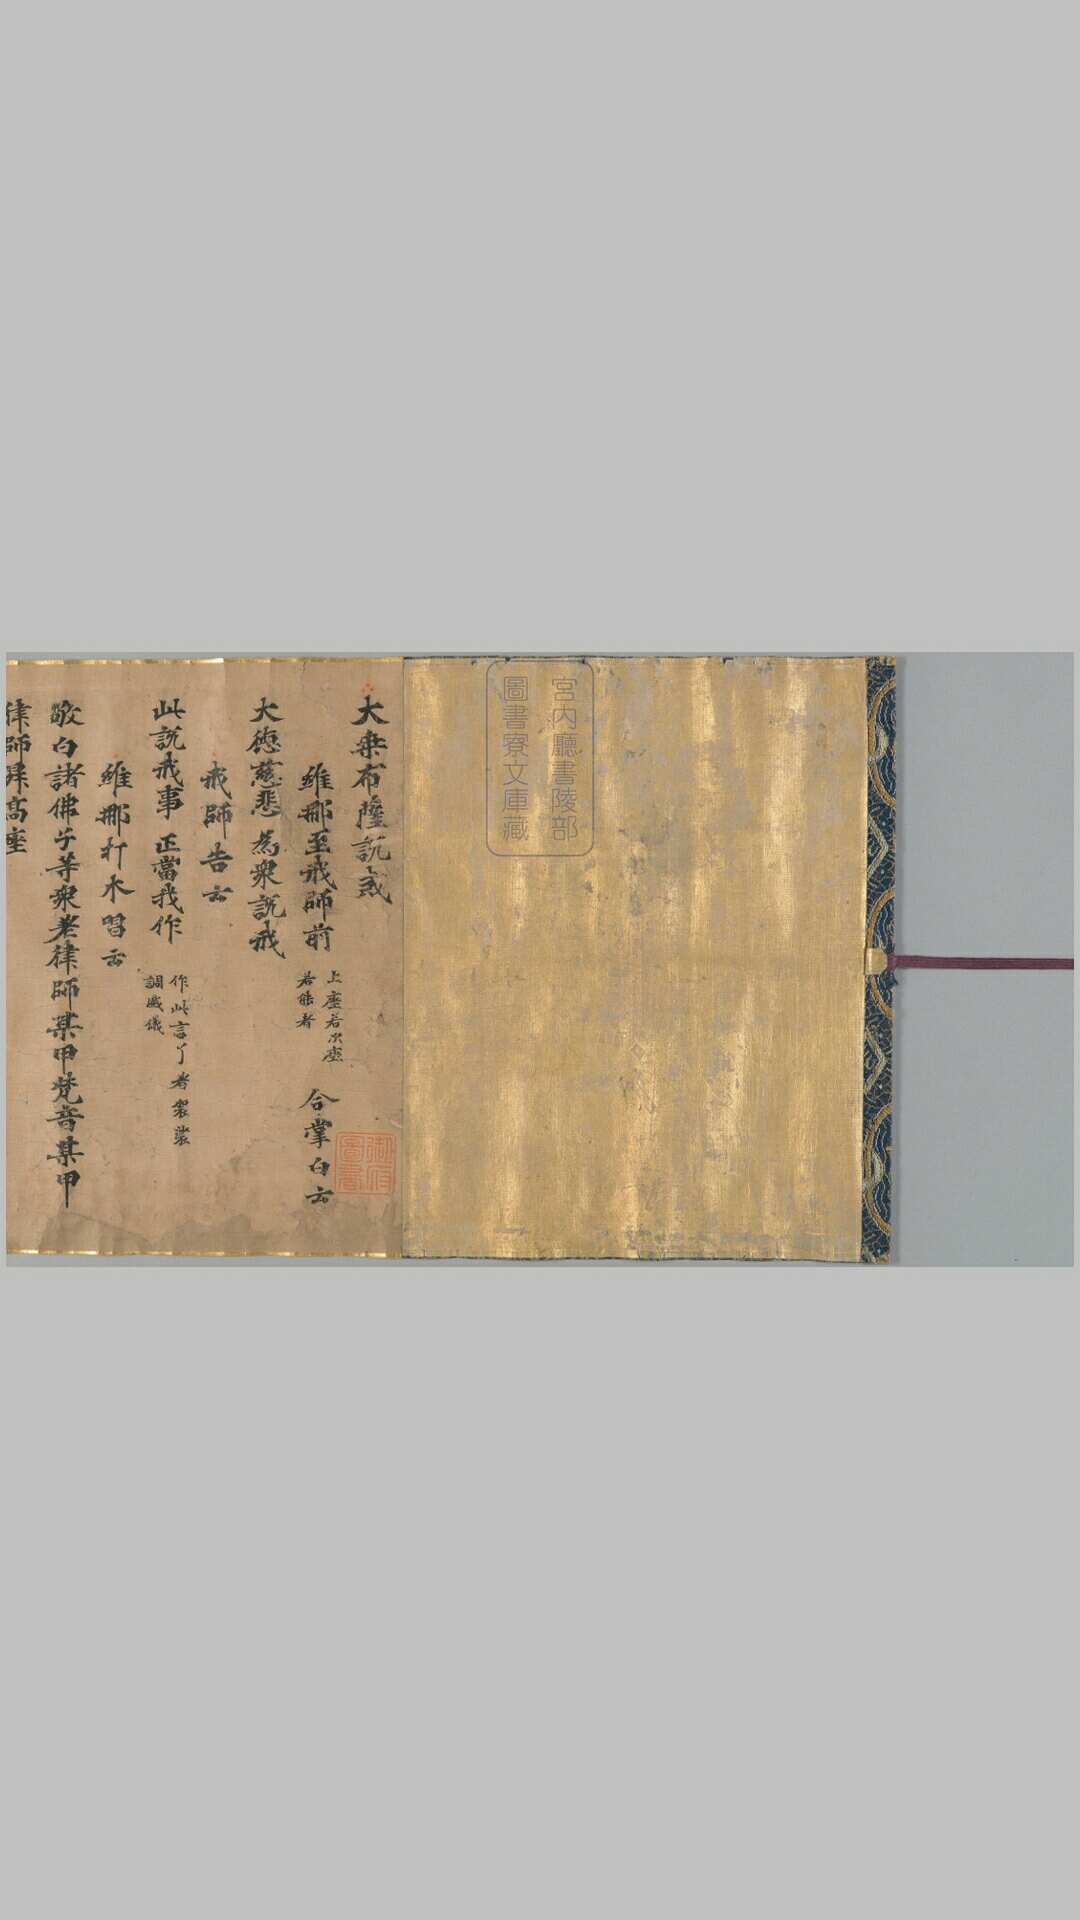 宮內廳書陵部
圖書寮文庫藏
大乗布薩說戒
維那至戒師前
上座若次座
若能者
合掌白云
御府
圖書
大德慈悲為衆說戒
戒師告云
此說戒事 正當我作
作此言了着袈裟
調威儀
維那打木習云
敬白諸佛子等衆老律師某甲梵音某甲
律師昇高座